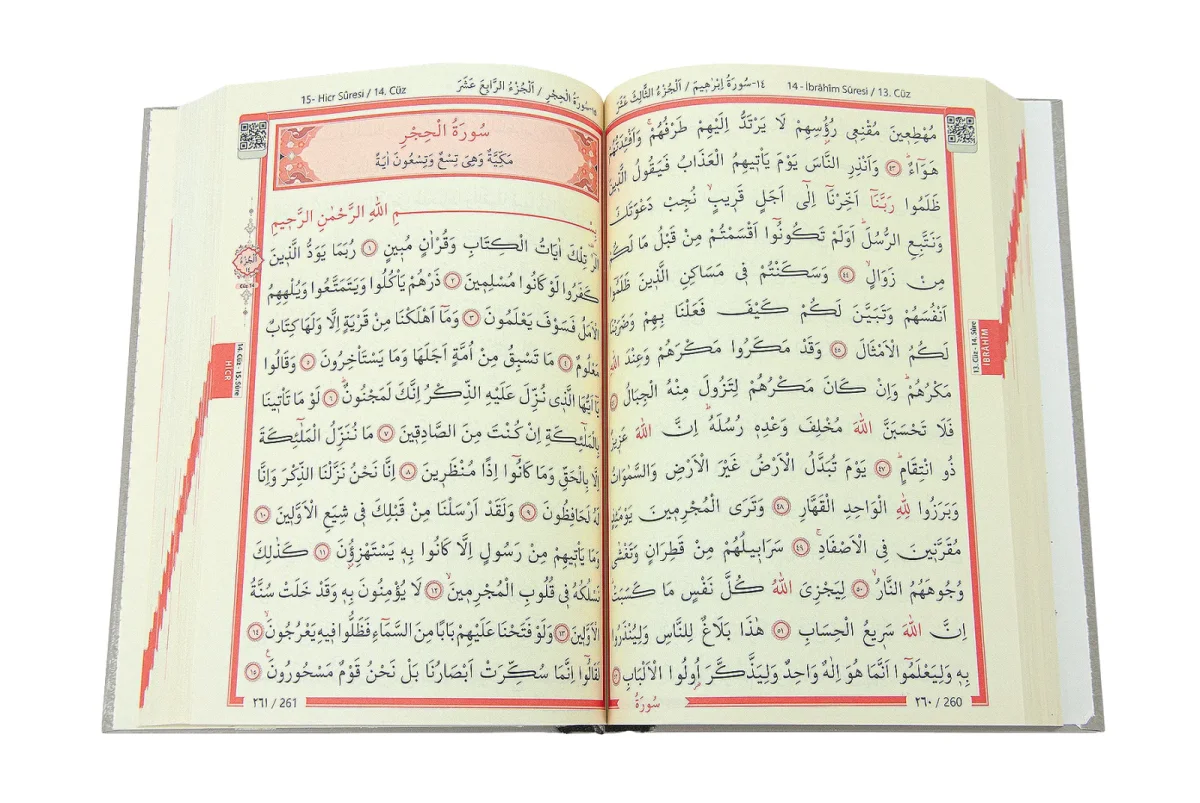 ١٤-سُورَةُ اِبْرٰهِيمَ / اَلْجُزْءُ الثَّالِثَ عَشَرَ 14 - İbrâhîm Sûresi / 13. Cüz
مُهْطِعِينَ مُقْنِعِى رُؤُ۫سِهِمْ لَا يَرْتَدُّ اِلَيْهِمْ طَرْفُهُمْۚ وَاَفْـِٔدَتُهُمْ
هَوَٓاءٌۜ ﴿٤٣﴾ وَاَنْذِرِ النَّاسَ يَوْمَ يَأْت۪يهِمُ الْعَذَابُ فَيَقُولُ الَّذ۪ينَ
ظَلَمُوا رَبَّنَٓا اَخِّرْنَٓا اِلٰٓى اَجَلٍ قَر۪يبٍۙ نُجِبْ دَعْوَتَكَ
وَنَتَّبِعِ الرُّسُلَۜ اَوَلَمْ تَكُونُٓوا اَقْسَمْتُمْ مِنْ قَبْلُ مَا لَكُمْ
مِنْ زَوَالٍۙ ﴿٤٤﴾ وَسَكَنْتُمْ ف۪ى مَسَاكِنِ الَّذ۪ينَ ظَلَمُٓوا
اَنْفُسَهُمْ وَتَبَيَّنَ لَكُمْ كَيْفَ فَعَلْنَا بِهِمْ وَضَرَبْنَا
لَكُمُ الْاَمْثَالَ ﴿٤٥﴾ وَقَدْ مَكَرُوا مَكْرَهُمْ وَعِنْدَ اللّٰهِ
مَكْرُهُمْۜ وَاِنْ كَانَ مَكْرُهُمْ لِتَزُولَ مِنْهُ الْجِبَالُ ﴿٤٦﴾
فَلَا تَحْسَبَنَّ اللّٰهَ مُخْلِفَ وَعْدِه۪ رُسُلَهُۜ اِنَّ اللّٰهَ عَز۪يزٌ
ذُو انْتِقَامٍۜ ﴿٤٧﴾ يَوْمَ تُبَدَّلُ الْاَرْضُ غَيْرَ الْاَرْضِ وَالسَّمٰوَاتُ
وَبَرَزُوا لِلّٰهِ الْوَاحِدِ الْقَهَّارِ ﴿٤٨﴾ وَتَرَى الْمُجْرِم۪ينَ يَوْمَئِذٍ
مُقَرَّن۪ينَ فِى الْاَصْفَادِۚ ﴿٤٩﴾ سَرَاب۪يلُهُمْ مِنْ قَطِرَانٍ وَتَغْشٰى
وُجُوهَهُمُ النَّارُۙ ﴿٥٠﴾ لِيَجْزِىَ اللّٰهُ كُلَّ نَفْسٍ مَا كَسَبَتْۜ
اِنَّ اللّٰهَ سَر۪يعُ الْحِسَابِ ﴿٥١﴾ هٰذَا بَلَاغٌ لِلنَّاسِ وَلِيُنْذَرُوا
بِه۪ وَلِيَعْلَمُٓوا اَنَّمَا هُوَ اِلٰهٌ وَاحِدٌ وَلِيَذَّكَّرَ اُو۬لُوا الْاَلْبَابِ ﴿٥٢﴾
سُورَةُ
٢٦٠ / 260
13. Cüz - 14. Sûre
İBRÂHİM
15- Hicr Sûresi / 14. Cüz ١٥-سُورَةُ الْحِجْرِ / اَلْجُزْءُ الرَّابِعَ عَشَرَ
سُورَةُ الْحِجْرِ
مَكِّيَّةٌ وَهِىَ تِسْعٌ وَتِسْعُونَ اٰيَةً
بِسْمِ اللّٰهِ الرَّحْمٰنِ الرَّح۪يمِ
الٓرٰ۠ تِلْكَ اٰيَاتُ الْكِتَابِ وَقُرْاٰنٍ مُب۪ينٍ ﴿١﴾ رُبَمَا يَوَدُّ الَّذ۪ينَ
كَفَرُوا لَوْ كَانُوا مُسْلِم۪ينَ ﴿٢﴾ ذَرْهُمْ يَأْكُلُوا وَيَتَمَتَّعُوا وَيُلْهِهِمُ
الْاَمَلُ فَسَوْفَ يَعْلَمُونَ ﴿٣﴾ وَمَٓا اَهْلَكْنَا مِنْ قَرْيَةٍ اِلَّا وَلَهَا كِتَابٌ
مَعْلُومٌ ﴿٤﴾ مَا تَسْبِقُ مِنْ اُمَّةٍ اَجَلَهَا وَمَا يَسْتَأْخِرُونَ ﴿٥﴾ وَقَالُوا
يَٓا اَيُّهَا الَّذ۪ى نُزِّلَ عَلَيْهِ الذِّكْرُ اِنَّكَ لَمَجْنُونٌۜ ﴿٦﴾ لَوْ مَا تَأْت۪ينَا
بِالْمَلٰٓئِكَةِ اِنْ كُنْتَ مِنَ الصَّادِق۪ينَ ﴿٧﴾ مَا نُنَزِّلُ الْمَلٰٓئِكَةَ
اِلَّا بِالْحَقِّ وَمَا كَانُٓوا اِذًا مُنْظَر۪ينَ ﴿٨﴾ اِنَّا نَحْنُ نَزَّلْنَا الذِّكْرَ وَاِنَّا
لَهُ لَحَافِظُونَ ﴿٩﴾ وَلَقَدْ اَرْسَلْنَا مِنْ قَبْلِكَ ف۪ى شِيَعِ الْاَوَّل۪ينَ ﴿١٠﴾
وَمَا يَأْت۪يهِمْ مِنْ رَسُولٍ اِلَّا كَانُوا بِه۪ يَسْتَهْزِؤُ۫نَ ﴿١١﴾ كَذٰلِكَ
نَسْلُكُهُ ف۪ى قُلُوبِ الْمُجْرِم۪ينَۙ ﴿١٢﴾ لَا يُؤْمِنُونَ بِه۪ وَقَدْ خَلَتْ سُنَّةُ
الْاَوَّل۪ينَ ﴿١٣﴾ وَلَوْ فَتَحْنَا عَلَيْهِمْ بَابًا مِنَ السَّمَٓاءِ فَظَلُّوا ف۪يهِ يَعْرُجُونَۙ ﴿١٤﴾
لَقَالُٓوا اِنَّمَا سُكِّرَتْ اَبْصَارُنَا بَلْ نَحْنُ قَوْمٌ مَسْحُورُونَ۟ ﴿١٥﴾
٢٦١ / 261
اَلْجُزْءُ
١٤
Cüz 14
14. Cüz - 15. Sûre
HİCR